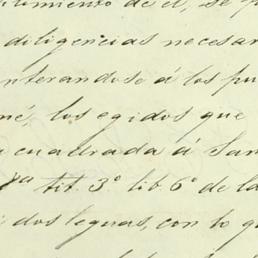 de el, se
diligencias necesar
nterandose á los pu
né, los egidos que
cuadrada á San
8ª tit. 3º lib. 6º de la
dos leguas, con lo q